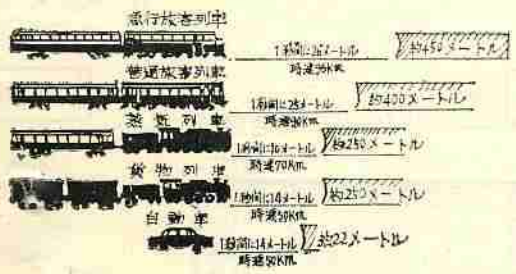 急行旅客列車
1秒間に26メートル
時速95Km
約450メートル
普通旅客列車
1秒間に25メートル
時速90Km
約400メートル
蒸気列車
1秒間に16メートル
時速70Km
約250メートル
貨物列車
1秒間に14メートル
時速50Km
約250メートル
自動車
1秒間に14メートル
時速50Km
約22メートル